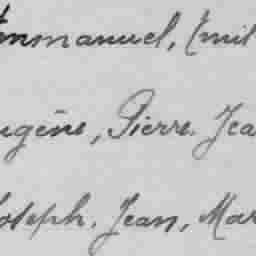 Emmanuel, Emil
ugène, Pierre. Jea
Joseph. Jean, Mar